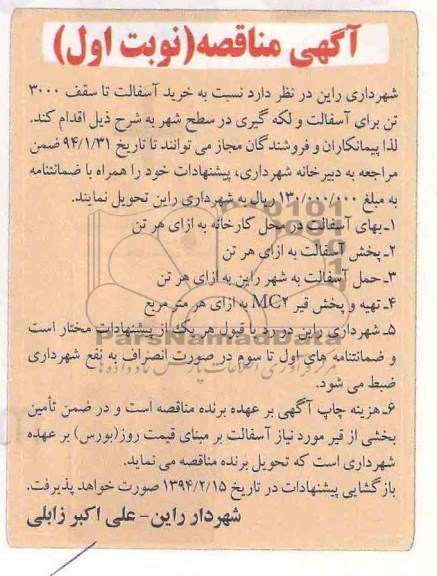 آگهی مناقصه(نوبت اول)
شهرداری راین در نظر دارد نسبت به خرید آسفالت تا سقف ۳۰۰۰
تن برای آسفالت و لکه گیری در سطح شهر به شرح ذیل اقدام کند.
لذا پیمانکاران و فروشندگان مجاز می توانند تا تاریخ ۹۴/۱/۳۱ ضمن
مراجعه به دبیرخانه شهرداری، پیشنهادات خود را همراه با ضمانتنامه
به مبلغ ۱۳۰/۰۰۰/۰۰۰ ریال به شهرداری راین تحویل نمایند.
۱ـ بهای آسفالت در محل کارخانه به ازای هر تن
۲ـ پخش آسفالت به ازای هر تن
۳ـ حمل آسفالت به شهر راین به ازای هر تن
۴ـ تهیه و پخش قیر MC۲ به ازای هر متر مربع
۵ـ شهرداری راین در رد یا قبول هر یک از پیشنهادات مختار است
ParsNamadData
و ضمانتنامه های اول تا سوم در صورت انصراف به نفع شهرداری
ضبط می شود.
۶ـ هزینه چاپ آگهی بر عهده برنده مناقصه است و در ضمن تأمین
بخشی از قیر مورد نیاز آسفالت بر مبنای قیمت روز(بورس) بر عهده
شهرداری است که تحویل برنده مناقصه می نماید.
بازگشایی پیشنهادات در تاریخ ۱۳۹۴/۲/۱۵ صورت خواهد پذیرفت.
شهردار راین- علی اکبر زابلی